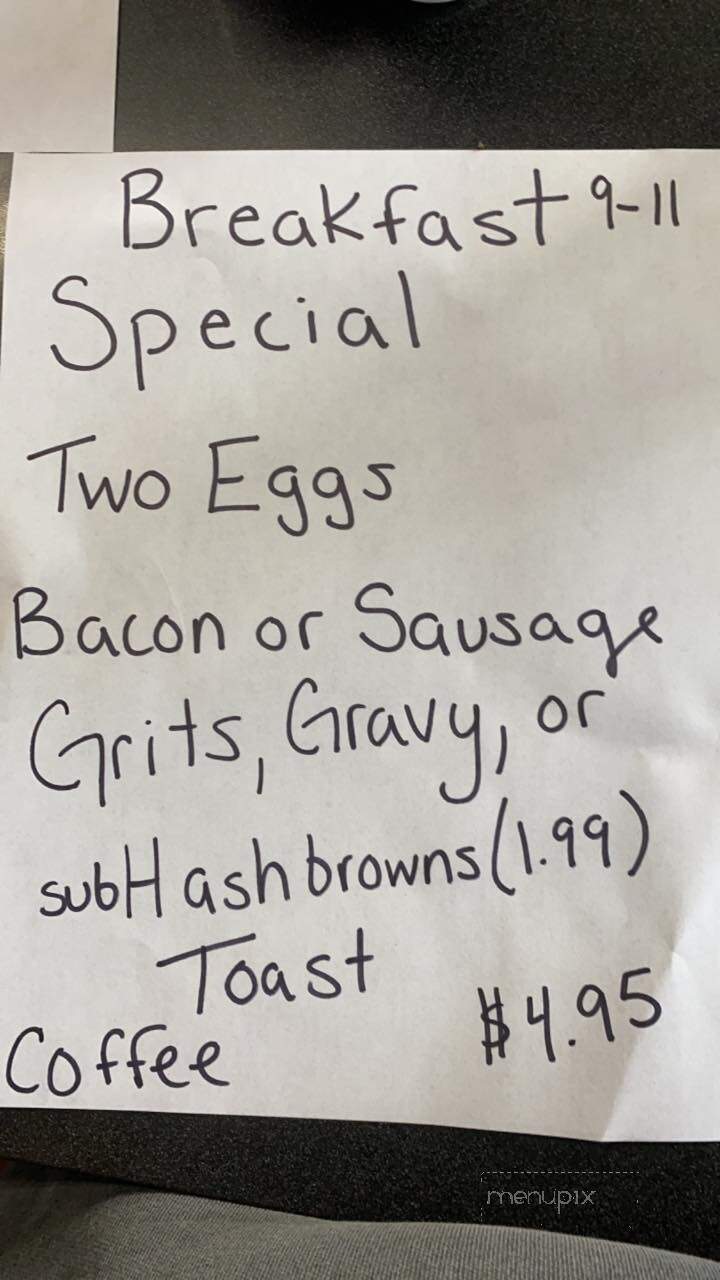 Breakfast 9-11
Special
Two Eggs
Bacon or Sausage
Grits, Gravy, or
sub Hashbrowns (1.99)
Toast
Coffee $4.95
menupix